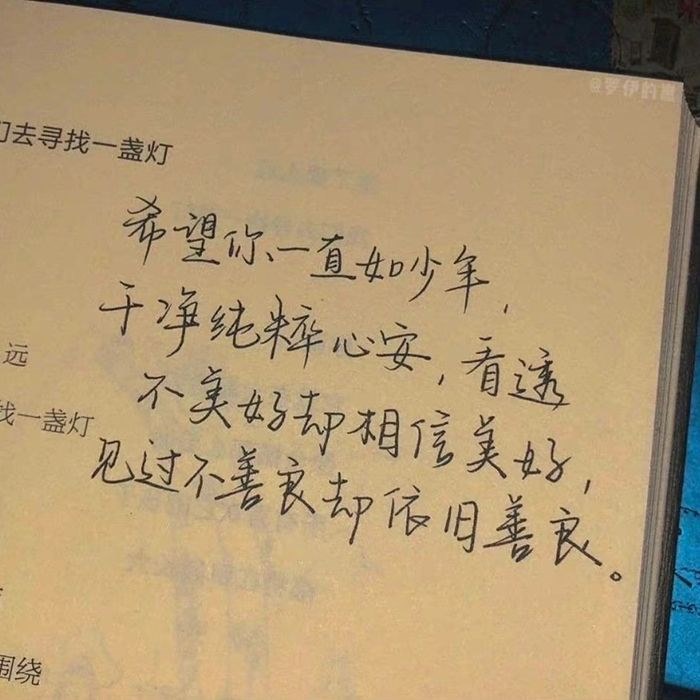 @罗伊的鹿
们去寻找一盏灯
希望你一直如少年，
干净纯粹心安，看透
远
不美好却相信美好，
找一盏灯
见过不善良却依旧善良。
围绕